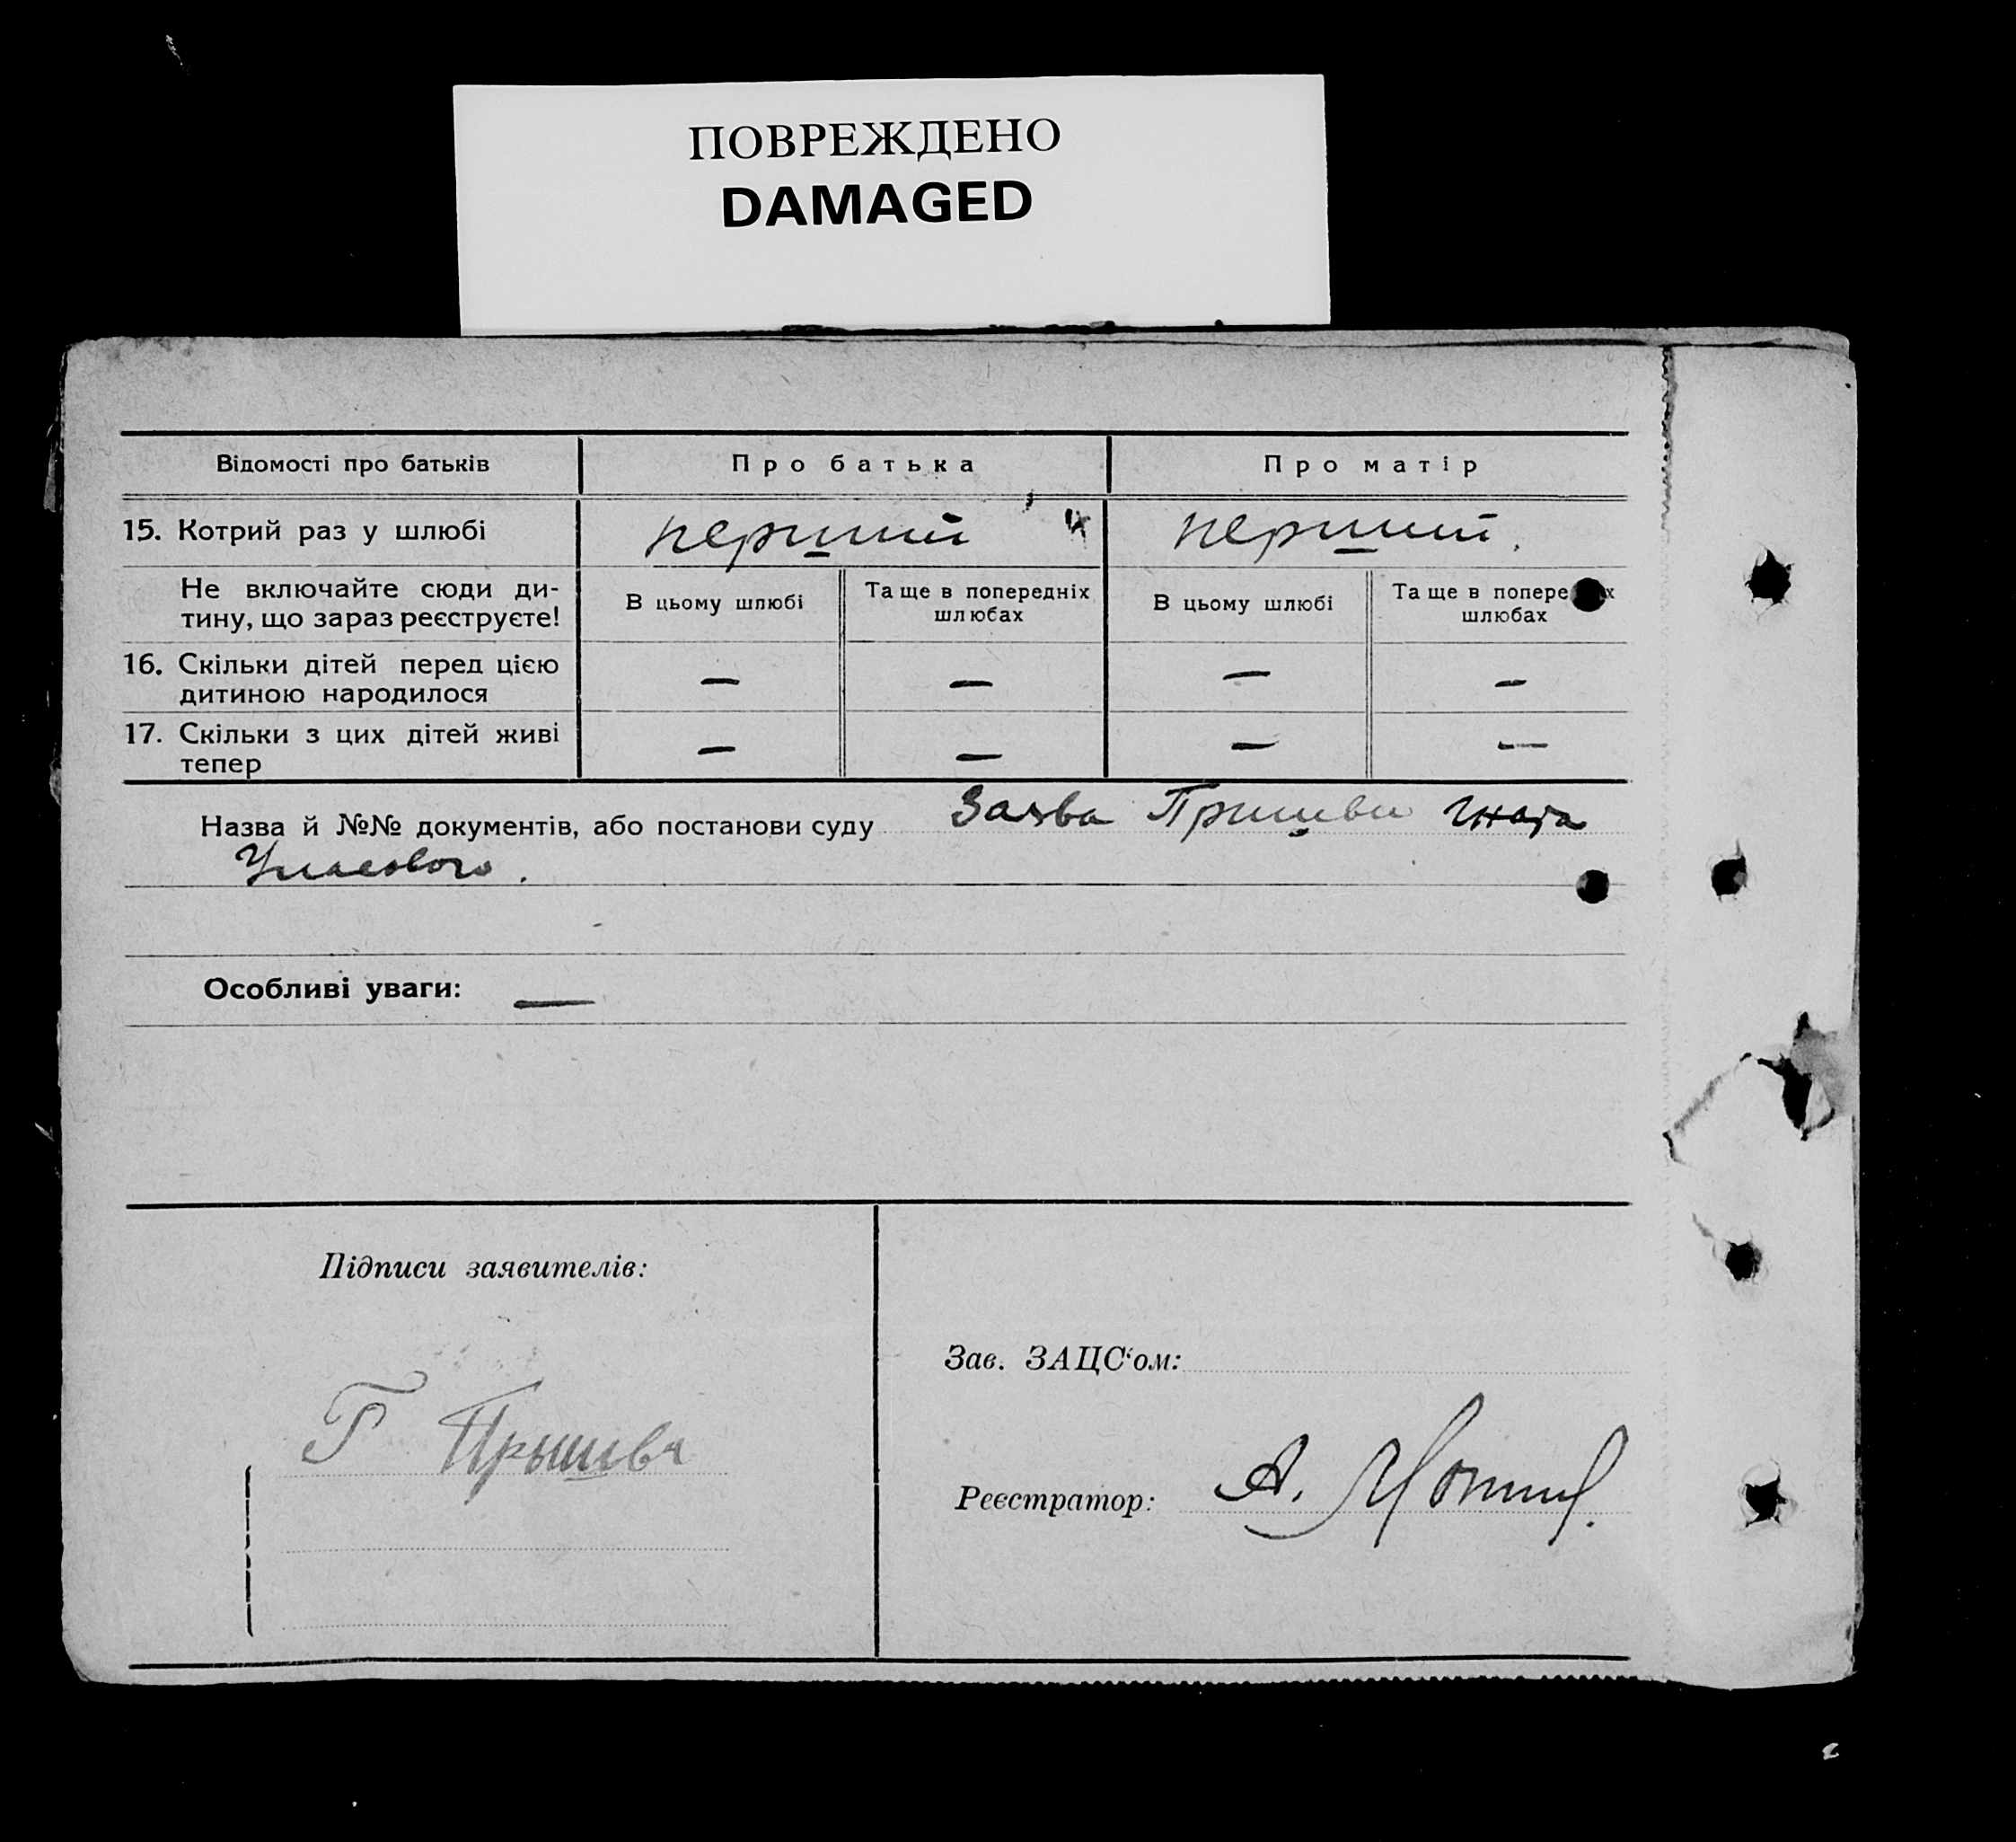 ПОВРЕЖДЕНО
DAMAGED
Відомості про батьків
Про батька
Про матір
15. Котрий раз у шлюбі
перший
перший.
Не включайте сюди ди-
тину, що зараз реєструєте!
В цьому шлюбі
Та ще в попередніх
шлюбах
В цьому шлюбі
Та ще в попере х
шлюбах
16. Скільки дітей перед цією
дитиною народилося
— — — —
17. Скільки з цих дітей живі
тепер
— — — —
Назва й №№ документів, або постанови суду Заява Пришви Гната
Уласового.
Особливі уваги: —
Підписи заявителів:
Г Прышва
Зав. ЗАЦС‘ом:
Реєстратор: А.